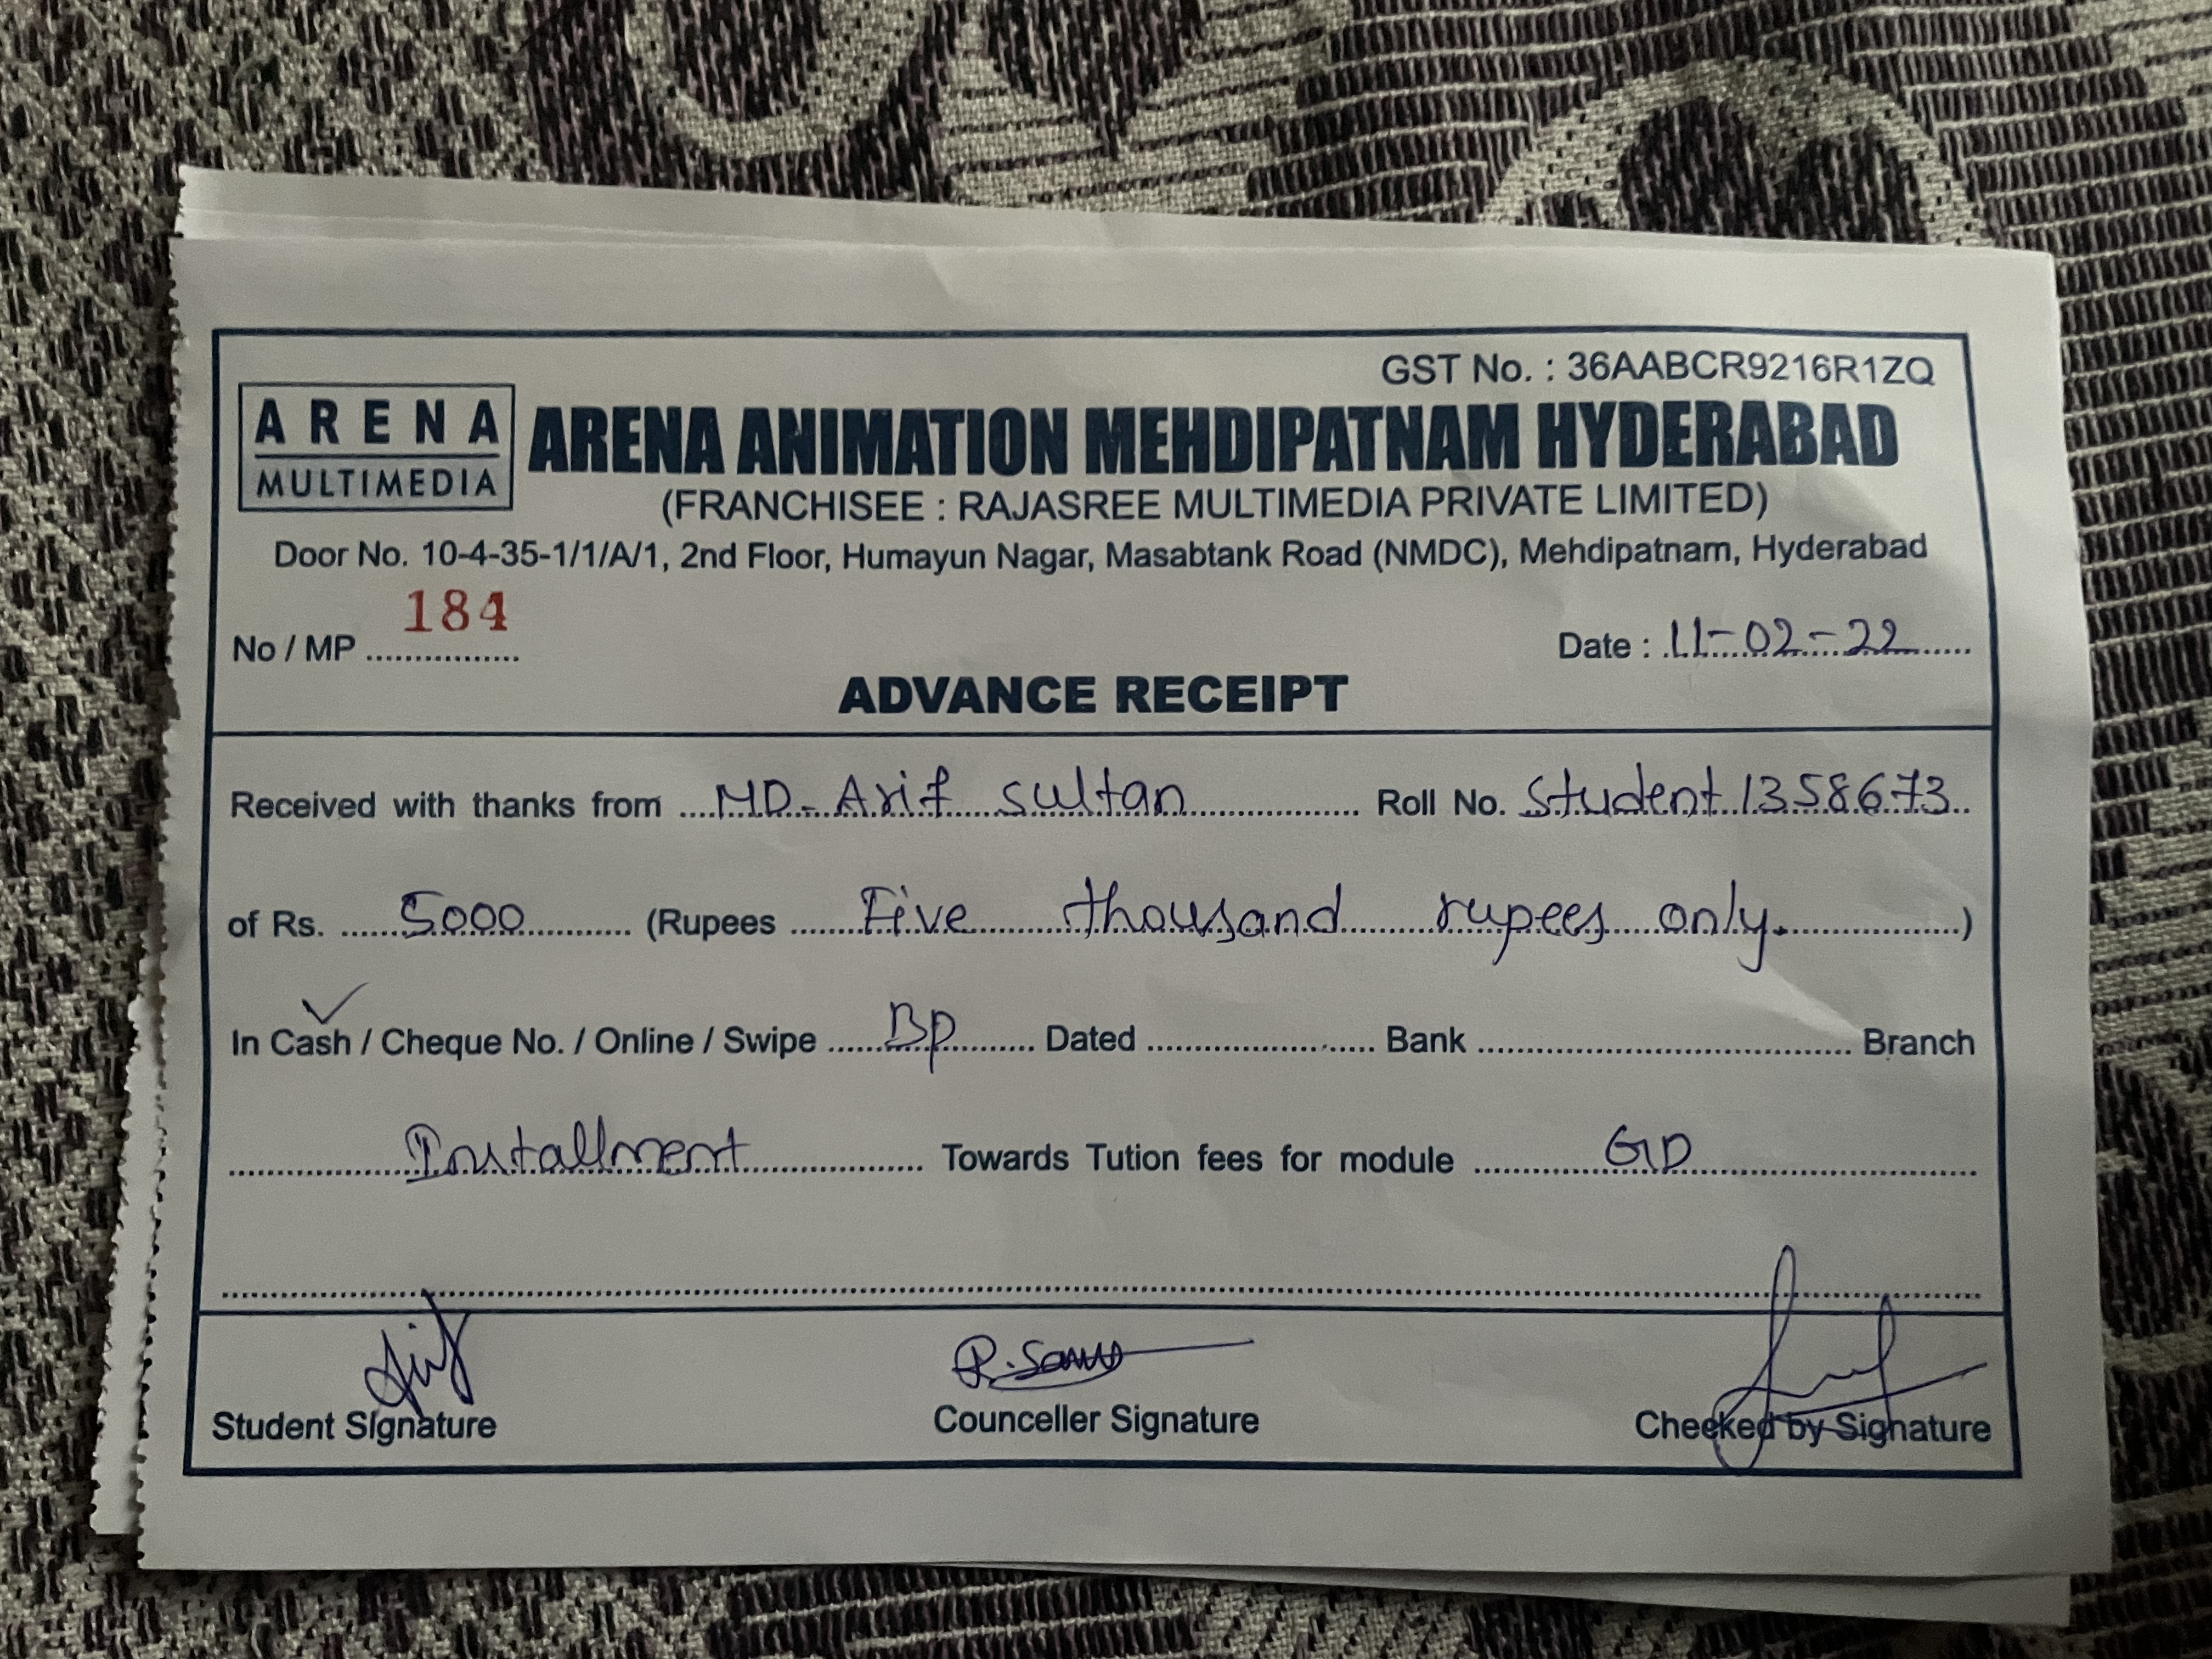 GST No. : 36AABCR9216R1ZQ
ARENA
MULTIMEDIA
ARENA ANIMATION MEHDIPATNAM HYDERABAD
(FRANCHISEE : RAJASREE MULTIMEDIA PRIVATE LIMITED)
Door No. 10-4-35-1/1/A/1, 2nd Floor, Humayun Nagar, Masabtank Road (NMDC), Mehdipatnam, Hyderabad
No / MP 184 Date : 11-02-22
ADVANCE RECEIPT
Received with thanks from MD. Arif sultan Roll No. Student 1358673
of Rs. 5000 (Rupees Five thousand rupees only.)
In Cash / Cheque No. / Online / Swipe DP Dated Bank Branch
Installment Towards Tution fees for module GD
Student Signature Counceller Signature Cheeked by Signature